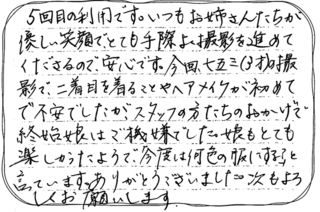 5回目の利用です。いつもお姉さんたちが
優しい笑顔でとても手際よく撮影を進めて
くださるので安心です。今回、七五三(3才)の撮
影で、二着目を着ることやヘアメイクが初めて
で不安でしたがスタッフの方たちのおかげで
終始娘はご機嫌でした。娘もとても
楽しかったようで、今度は何色の服にすると
言っています。ありがとうございました。次もよろ
しくお願いします